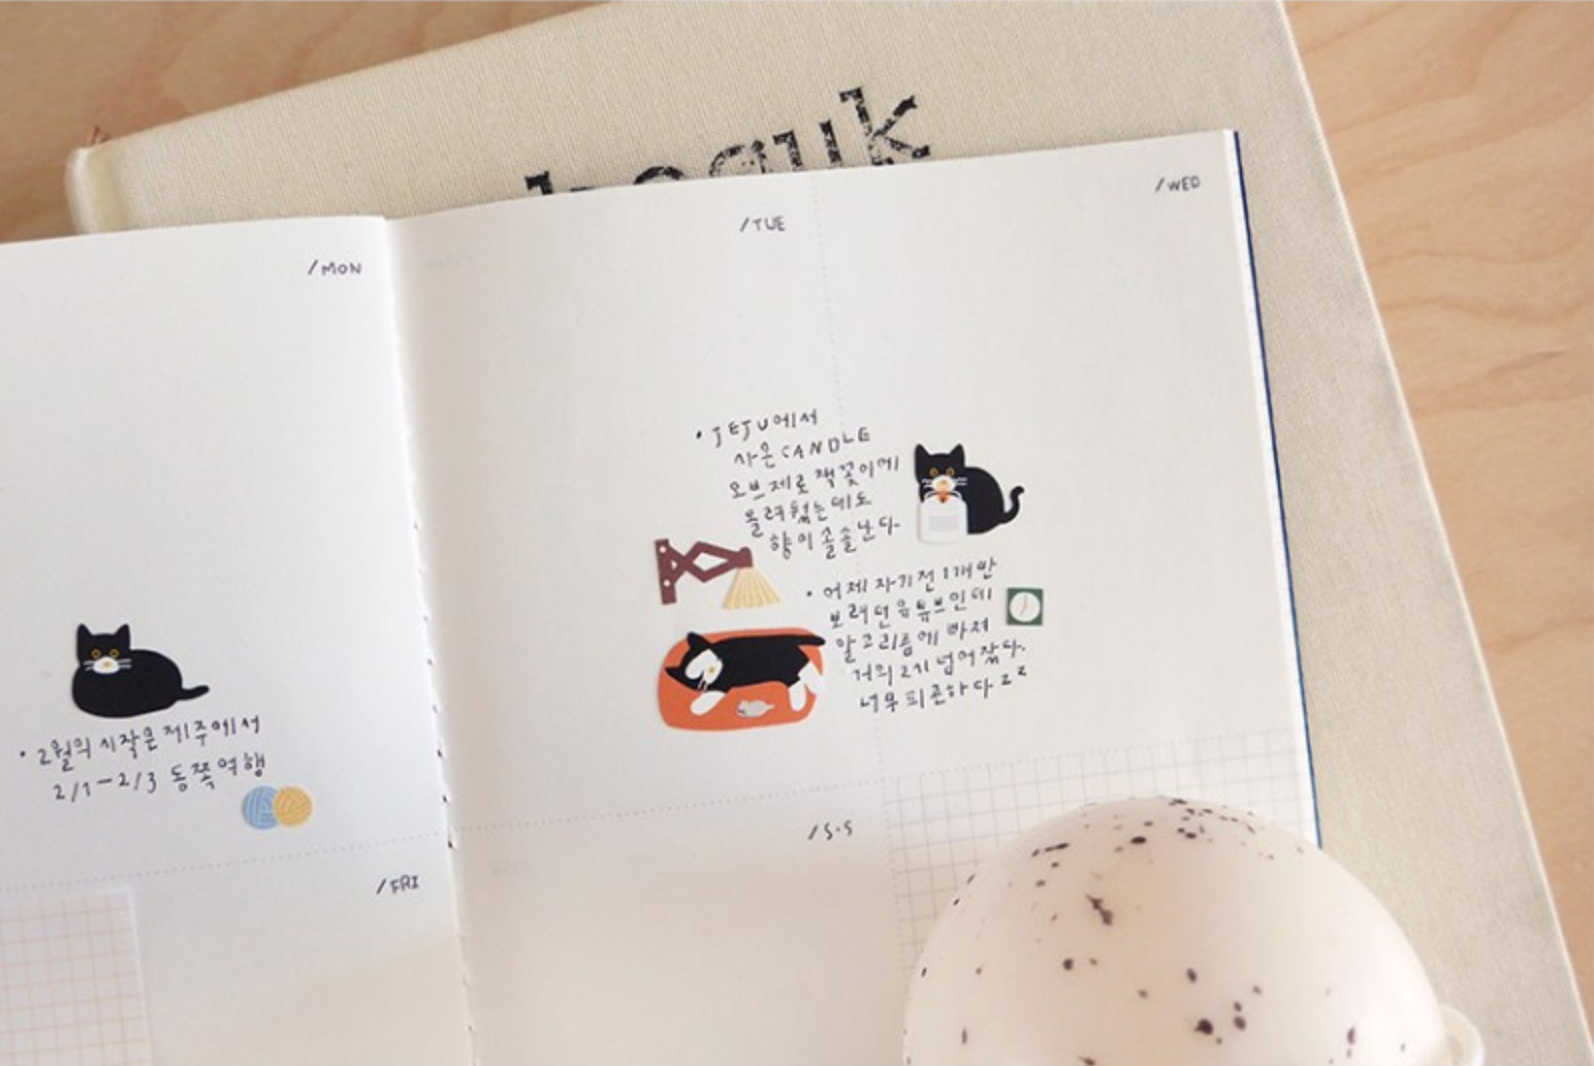 /MON
· 2월의 시작은 제주에서
2/1-2/3 동쪽여행
/FRI
/TUE
· JEJU에서
사온 CANDLE
오브제로 책꽂이에
올려뒀는데도
향이 솔솔난다
· 어제 자기전 1개만
보려던 유튜브인데
알고리즘에 빠져
거의 2시 넘어잤다.
너무 피곤하다 ㄹㄹ
/WED
/S·S